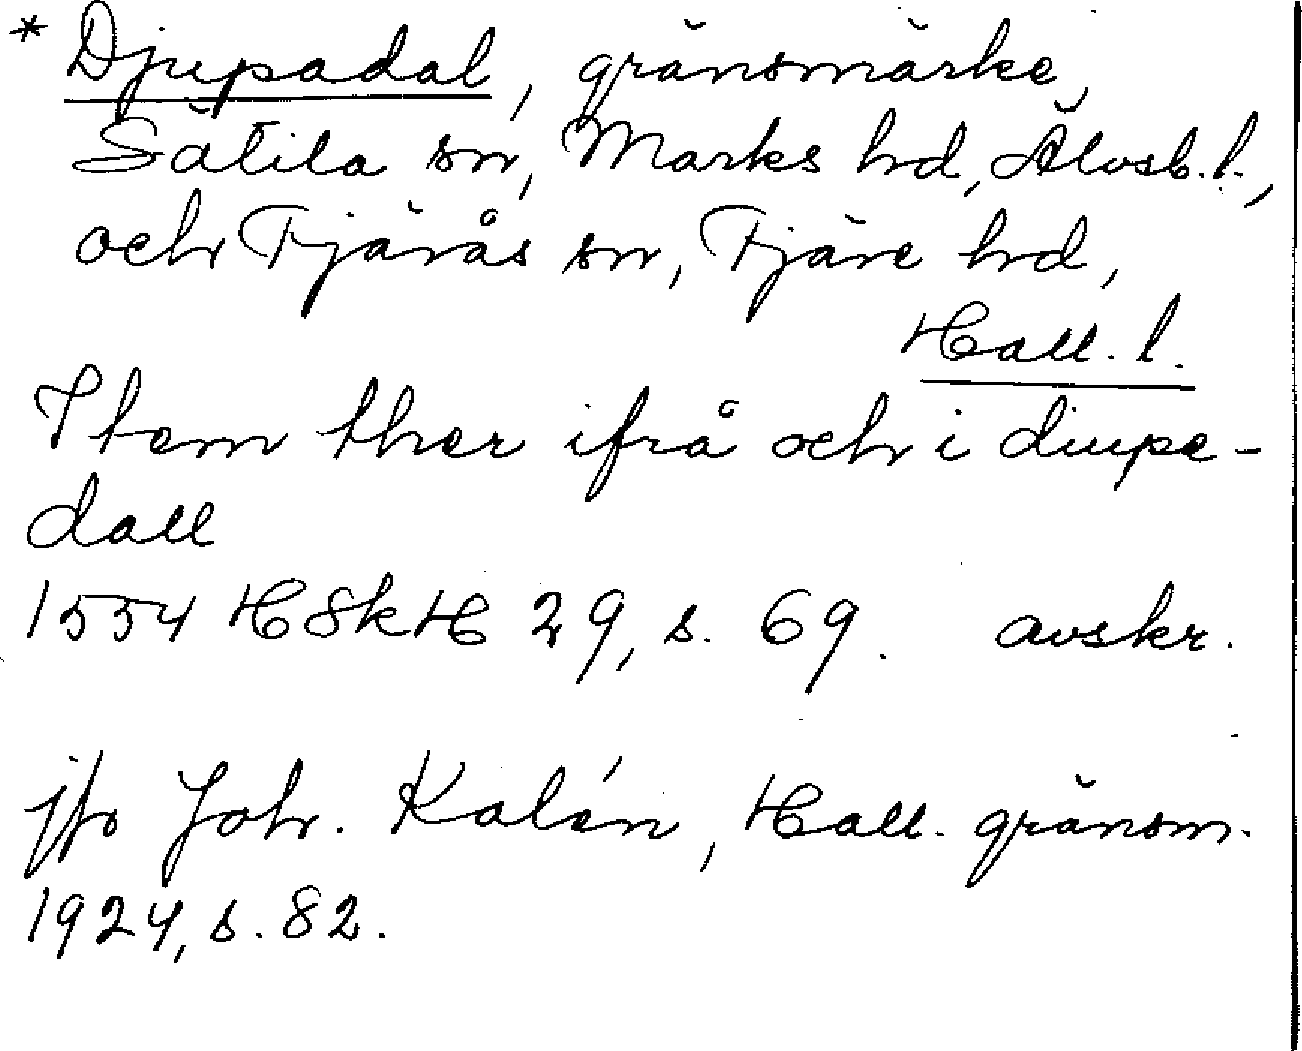 * Djupadal, gränsmärke,
Sätila sn, Marks hd, Älvsb. l.,
och Fjärås sn, Fjäre hd,
Hall. l.
Item ther ifrå och i diupe-
dall
1554 HSkH 29, s. 69. avskr.
jfr Joh. Kalén, Hall. gränsm.
1924, s. 82.